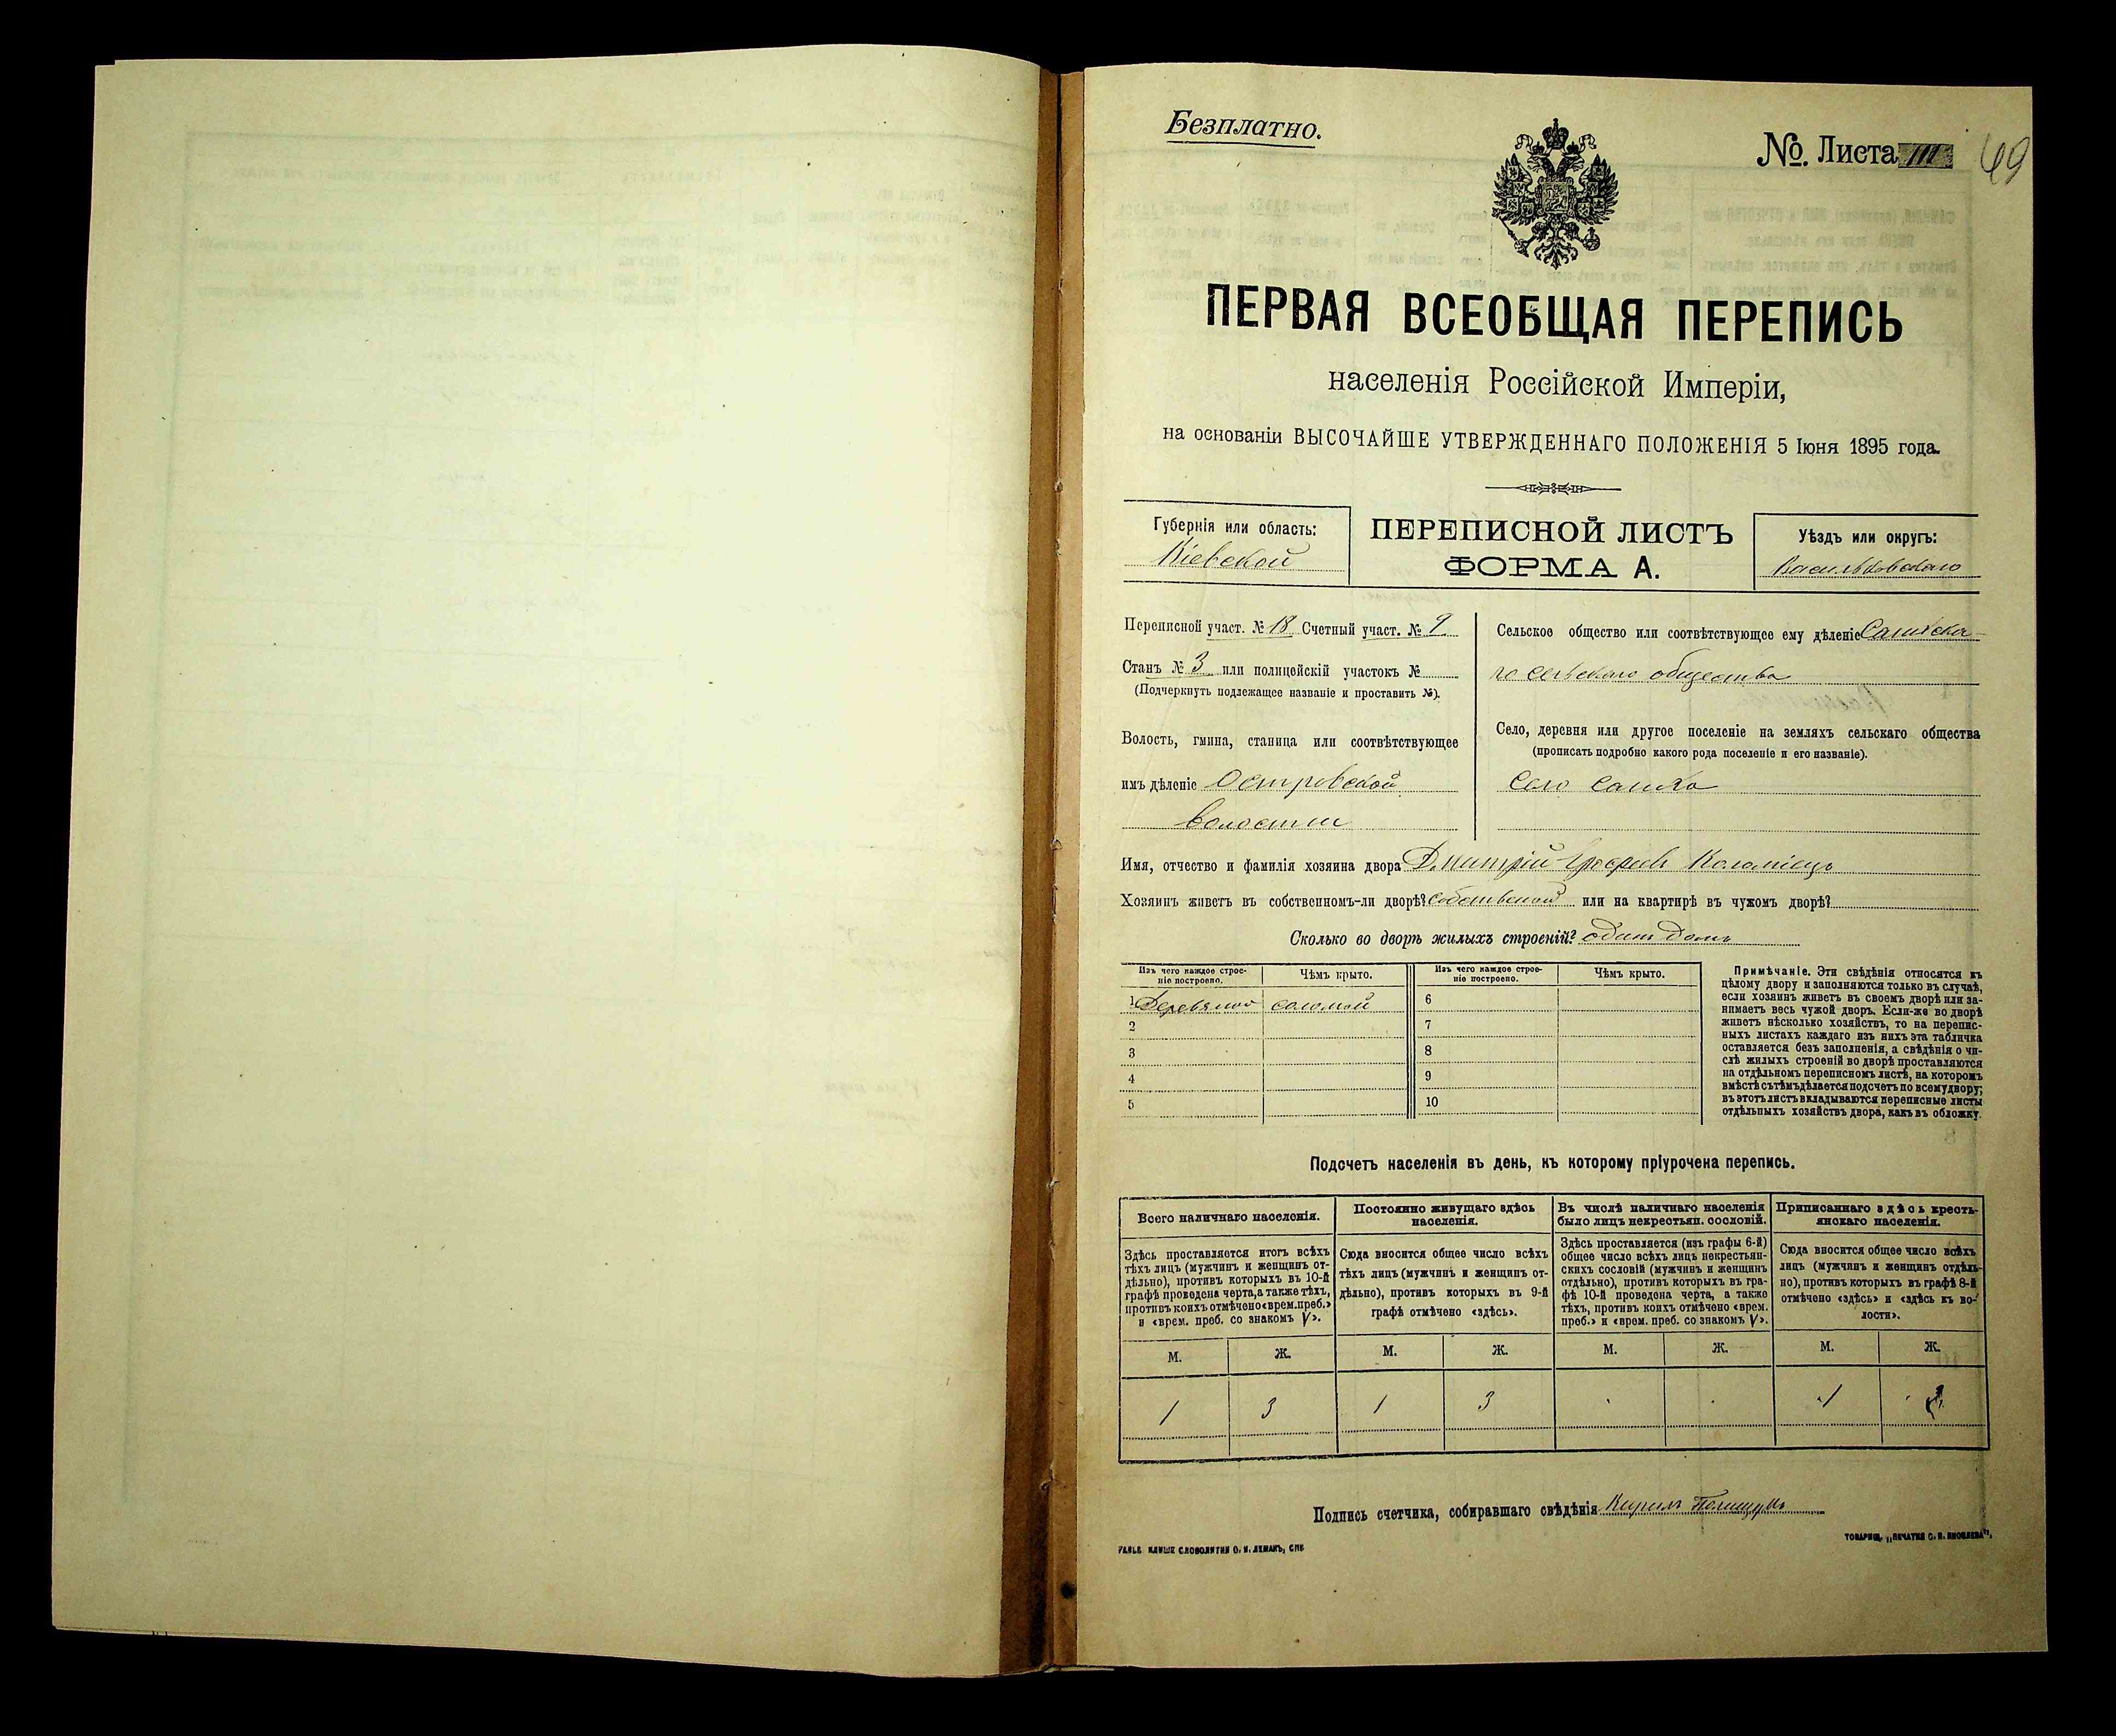 Безплатно.
№. Листа 111
69
ПЕРВАЯ ВСЕОБЩАЯ ПЕРЕПИСЬ
населенія Россійской Имперіи,
на основаніи ВЫСОЧАЙШЕ УТВЕРЖДЕННАГО ПОЛОЖЕНІЯ 5 Іюня 1895 года.
Губернія или область:
Кіевской
ПЕРЕПИСНОЙ ЛИСТЪ
ФОРМА А.
Уѣздъ или округъ:
Васильковскаго
Переписной участ. № 18 Счетный участ. № 9
Станъ № 3 или полицейскій участокъ №
(Подчеркнуть подлежащее названіе и проставить №).
Волость, гмина, станица или соотвѣтствующее
имъ дѣленіе Островской
волости
Сельское общество или соотвѣтствующее ему дѣленіе
го сельскаго общества
Село, деревня или другое поселеніе на земляхъ сельскаго общества
(прописать подробно какого рода поселеніе и его названіе).
село
Имя, отчество и фамилія хозяина двора Дмитрій Коломіецъ
Хозяинъ живетъ въ собственномъ-ли дворѣ? или на квартирѣ въ чужомъ дворѣ?
Сколько во дворѣ жилыхъ строеній? одинъ домъ
Изъ чего каждое строе-
ніе построено.
Чѣмъ крыто.
Изъ чего каждое строе-
ніе построено.
Чѣмъ крыто.
1 соломой 6
2 7
3 8
4 9
5 10
Примѣчаніе. Эти свѣдѣнія относятся къ
цѣлому двору и заполняются только въ случаѣ,
если хозяинъ живетъ въ своемъ дворѣ или за-
нимаетъ весь чужой дворъ. Если-же во дворѣ
живетъ нѣсколько хозяйствъ, то на перепис-
ныхъ листахъ каждаго изъ нихъ эта табличка
оставляется безъ заполненія, а свѣдѣнія о чи-
слѣ жилыхъ строеній во дворѣ проставляются
на отдѣльномъ переписномъ листѣ, на которомъ
вмѣстѣ съ тѣмъ дѣлается подсчетъ по всему двору;
въ этотъ листъ вкладываются переписные листы
отдѣльныхъ хозяйствъ двора, какъ въ обложку.
Подсчетъ населенія въ день, къ которому пріурочена перепись.
Всего наличнаго населенія.
Здѣсь проставляется итогъ всѣхъ
тѣхъ лицъ (мужчинъ и женщинъ от-
дѣльно), противъ которыхъ въ 10-й
графѣ проведена черта, а также тѣхъ,
противъ коихъ отмѣчено «врем. преб.»
и «врем. преб. со знакомъ V».
Постоянно живущаго здѣсь
населенія.
Сюда вносится общее число всѣхъ
тѣхъ лицъ (мужчинъ и женщинъ от-
дѣльно), противъ которыхъ въ 9-й
графѣ отмѣчено «здѣсь».
Въ числѣ наличнаго населенія
было лицъ некрестьян. сословій.
Здѣсь проставляется (изъ графы 6-й)
общее число всѣхъ лицъ некрестьян-
скихъ сословій (мужчинъ и женщинъ
отдѣльно), противъ которыхъ въ гра-
фѣ 10-й проведена черта, а также
тѣхъ, противъ коихъ отмѣчено «врем.
преб.» и «врем. преб. со знакомъ V».
Приписаннаго здѣсь кресть-
янскаго населенія.
Сюда вносится общее число всѣхъ
лицъ (мужчинъ и женщинъ отдѣль-
но), противъ которыхъ въ графѣ 8-й
отмѣчено «здѣсь» и «здѣсь къ во-
лости».
М. Ж. М. Ж. М. Ж. М. Ж.
1 3 1 3 1
Подпись счетчика, собиравшаго свѣдѣнія Кирилъ Полищукъ